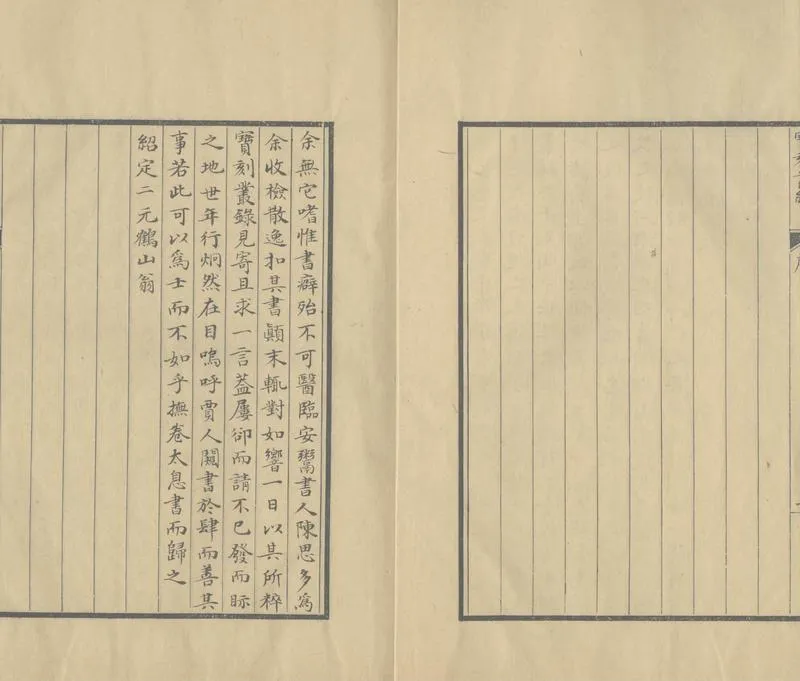 余無它嗜惟書癖殆不可醫臨安鬻書人陳思多為
余收檢散逸扣其書顛末輒對如響一日以其所稡
寶刻叢錄見寄且求一言蓋屢卻而請不已發而眎
之地世年行炯然在目嗚呼賈人闚書於肆而善其
事若此可以為士而不如乎撫卷太息書而歸之
紹定二元鶴山翁